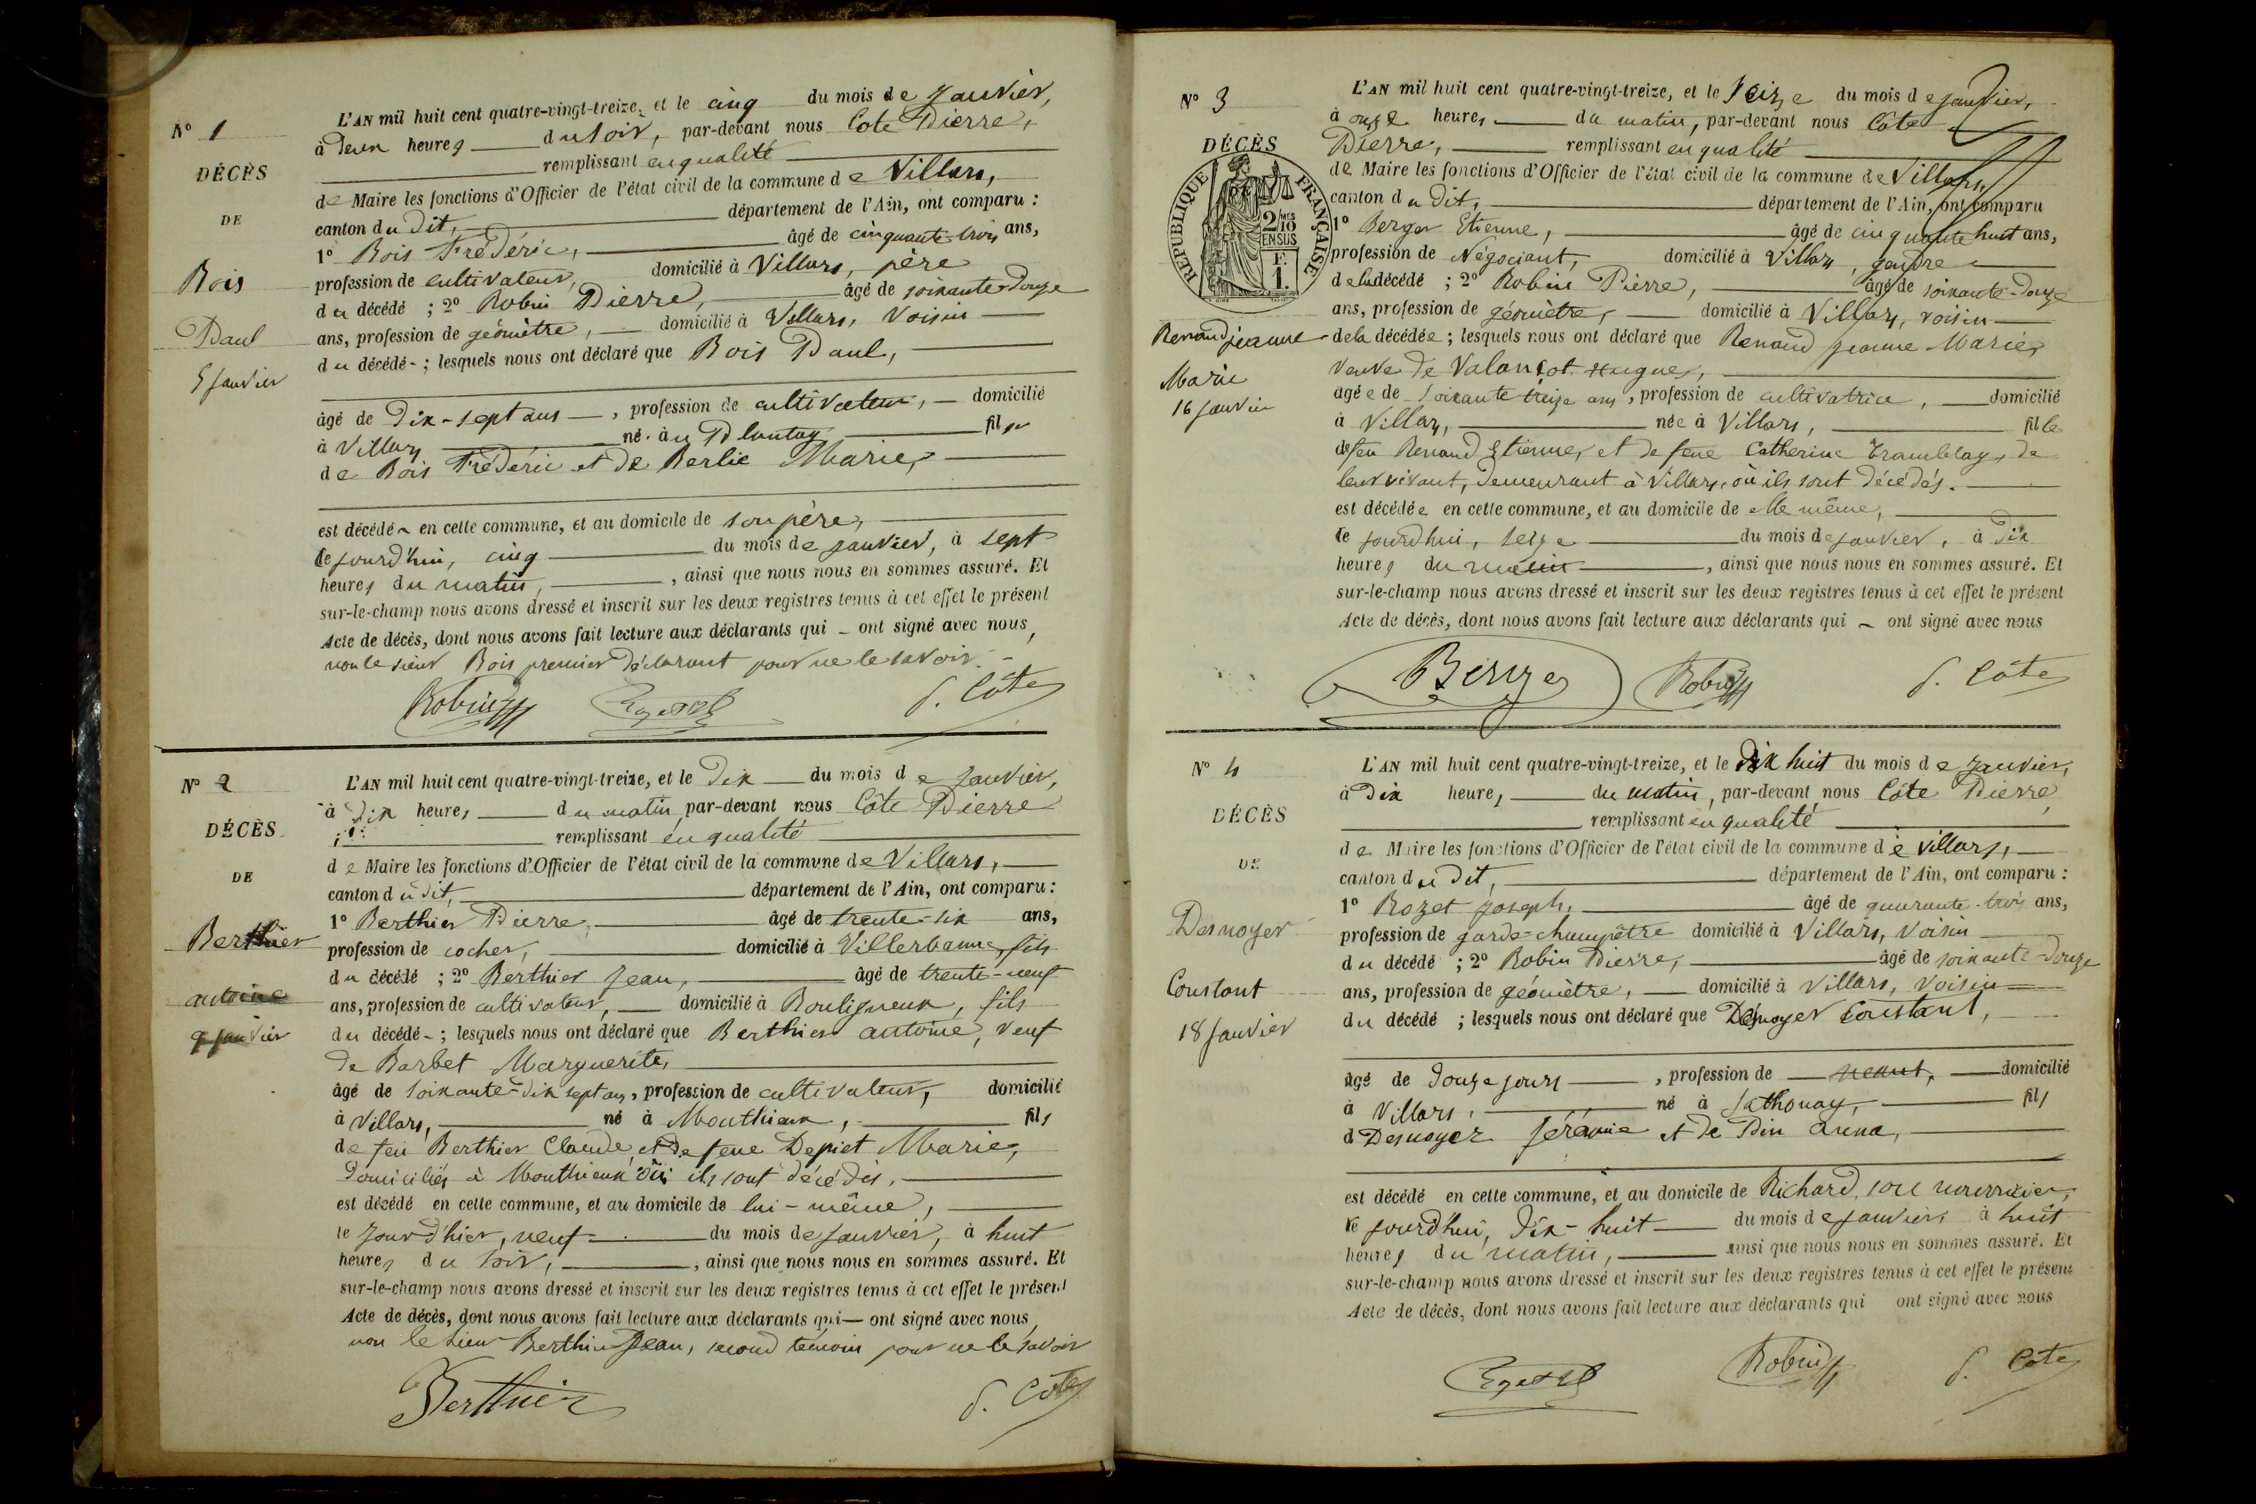 N° 1
DÉCÈS
DE
Bois
Paul
5 Janvier
L'AN mil huit cent quatre-vingt-treize, et le cinq du mois de Janvier,
à deux heures du soir, par-devant nous Cote Pierre,
remplissant en qualité
de Maire les fonctions d'Officier de l'état civil de la commune de Villars,
canton du dit, département de l'Ain, ont comparu :
1° Bois Frédéric, âgé de cinquante-trois ans,
profession de cultivateur, domicilié à Villars, père
du décédé ; 2° Robin Pierre, âgé de soixante-douze
ans, profession de géomètre, domicilié à Villars, voisin
du décédé - ; lesquels nous ont déclaré que Bois Paul,
âgé de Dix-sept ans, profession de cultivateur, domicilié
à Villars né au Plantay fils
de Bois Frédéric et de Berlie Marie,
est décédé en cette commune, et au domicile de son père,
le jourd'hui, cinq du mois de janvier, à sept
heures du matin, ainsi que nous nous en sommes assuré. Et
sur-le-champ nous avons dressé et inscrit sur les deux registres tenus à cet effet le présent
Acte de décès, dont nous avons fait lecture aux déclarants qui - ont signé avec nous,
non le sieur Bois premier déclarant pour ne le savoir. -
Robin P. Côte
N° 2
DÉCÈS
DE
Berthier
antoine
9 Janvier
L'AN mil huit cent quatre-vingt-treize, et le Dix du mois de Janvier,
à dix heures du matin, par-devant nous Côte Pierre
remplissant en qualité
de Maire les fonctions d'Officier de l'état civil de la commune de Villars,
canton du dit, département de l'Ain, ont comparu :
1° Berthier Pierre, âgé de trente-six ans,
profession de cocher, domicilié à Villerbanne, fils
du décédé ; 2° Berthier Jean, âgé de trente-neuf
ans, profession de cultivateur, domicilié à Bouligneux, fils
du décédé - ; lesquels nous ont déclaré que Berthier antoine, veuf
de Barbet Marguerite,
âgé de soixante-dix sept ans, profession de cultivateur, domicilié
à Villars, né à Monthieux, fils
de feu Berthier Claude, et de feue Depiet Marie,
domiciliés à Monthieux où ils sont décédés,
est décédé en cette commune, et au domicile de lui-même,
le jour d'hier, neuf du mois de Janvier, à huit
heures du soir, ainsi que nous nous en sommes assuré. Et
sur-le-champ nous avons dressé et inscrit sur les deux registres tenus à cet effet le présent
Acte de décès, dont nous avons fait lecture aux déclarants qui — ont signé avec nous,
non le sieur Berthier Jean, second témoin pour ne le savoir
Berthier P. Côte
N° 3
DÉCÈS
RÉPUBLIQUE FRANÇAISE
2/10 MES
EN SUS
F.
1.
Renaud jeanne
Marie
16 Janvier
L'AN mil huit cent quatre-vingt-treize, et le seize du mois de janvier,
à onze heures du matin, par-devant nous Côte
Pierre, remplissant en qualité
de Maire les fonctions d'Officier de l'état civil de la commune de Villars,
canton du dit, département de l'Ain, ont comparu
1° Berger Etienne, âgé de cinquante huit ans,
profession de Négociant, domicilié à Villars, gendre
de la décédé ; 2° Robin Pierre, âgé de soixante-douze
ans, profession de géomètre, domicilié à Villars, voisin
de la décédée ; lesquels nous ont déclaré que Renaud jeanne Marie,
veuve de Valansot Hugues,
agée de soixante treize ans, profession de cultivatrice, domicilié
à Villars, née à Villars, fille
de feu Renaud Etienne, et de feue Catherine Tramblay, de
leur vivant, demeurant à Villars, où ils sont décédés.
est décédée en cette commune, et au domicile de elle même,
le jourd'hui, seize du mois de janvier, à dix
heures du matin, ainsi que nous nous en sommes assuré. Et
sur-le-champ nous avons dressé et inscrit sur les deux registres tenus à cet effet le présent
Acte de décès, dont nous avons fait lecture aux déclarants qui - ont signé avec nous
Berger Robin P. Côte
N° 4
DÉCÈS
DE
Desnoyer
Constant
18 Janvier
L'AN mil huit cent quatre-vingt-treize, et le Dix huit du mois de Janvier,
à Dix heures du matin, par-devant nous Côte Pierre,
remplissant en qualité
de Maire les fonctions d'Officier de l'état civil de la commune de Villars,
canton du dit, département de l'Ain, ont comparu :
1° Rozet Joseph, âgé de quarante-trois ans,
profession de garde-champêtre domicilié à Villars, voisin
du décédé ; 2° Robin Pierre, âgé de soixante-douze
ans, profession de géomètre, domicilié à Villars, voisin
du décédé ; lesquels nous ont déclaré que Desnoyer Constant,
âgé de douze jours, profession de néant, domicilié
à Villars, né à Sathonay, fils
d Desnoyer Jérémie et de Pin anna,
est décédé en cette commune, et au domicile de Richard, son nourricier,
le jourd'hui, dix-huit du mois de janvier, à huit
heures du matin, ainsi que nous nous en sommes assuré. Et
sur-le-champ nous avons dressé et inscrit sur les deux registres tenus à cet effet le présent
Acte de décès, dont nous avons fait lecture aux déclarants qui ont signé avec nous
Robin P. Cote